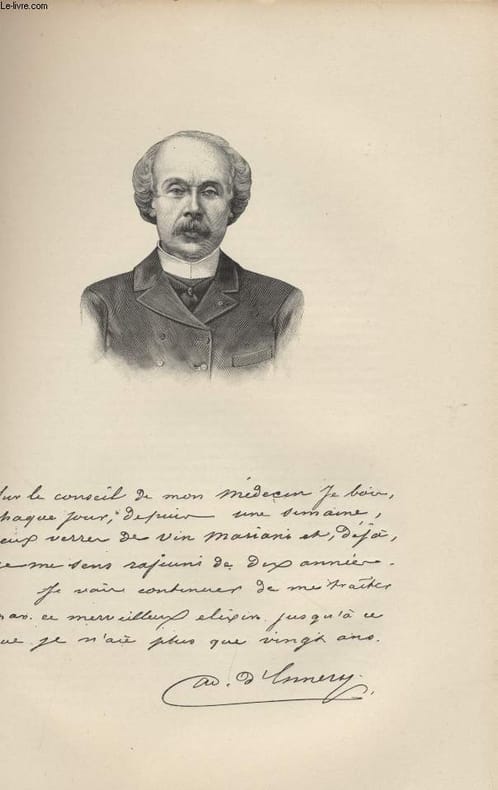 Le-livre.com
ur le conseil de mon médecin Je bois,
haque jour, depuis une semaine,
eux verres de vin Mariani et, déjà,
e me sens rajeuni de dix années.
Je vais continuer de me traiter
ar ce merveilleux elixir jusqu'à ce
ue je n'aie plus que vingt ans.
Ad. d'Ennery.